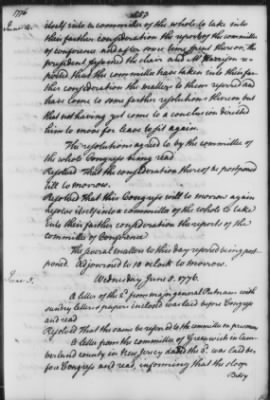 1776
June 4.
itself into a committee of the whole to take into
their farther consideration the report of the committee
of conference and after some time spent thereon, the
president resumed the chair and Mr Harrison re-
ported that the committee have taken into their far
ther consideration the matter to them referred and
have come to some farther resolutions thereon but
that not having yet come to a conclusion directed
him to move for leave to sit again.
The resolutions agreed to by the committee of
the whole Congress being read
Resolved That the consideration thereof be postponed
till to morrow.
Resolved that this Congress will to morrow again
resolve itself into a committee of the whole to take
into their farther consideration the reports of the
committee of Conference
The several matters to this day referred being post
poned. Adjourned to 10 oClock to morrow.
Wednesday June 5. 1776.
June 5.
A letter of the 2d from major general Putnam with
sundry letters & papers inclosed was laid before Congress
and read
Resolved That the same be referred to the committee on prisoners
A letter from the committee of Greenwich in Cum
berland county in New Jersey dated the 2d. was laid be
fore Congress and read, informing that the sloop
Betsy